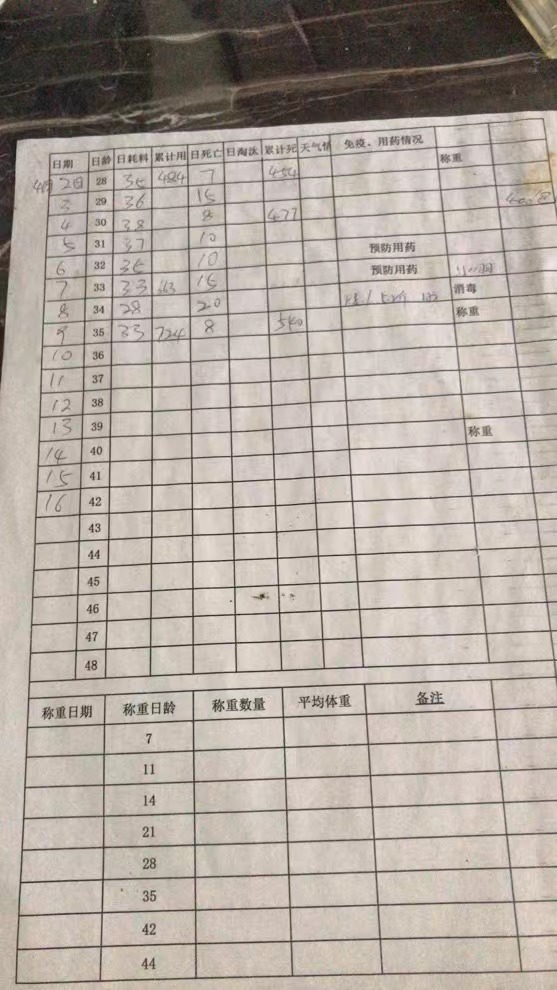 日期 日龄 日耗料 累计用 日死亡 日淘汰 累计死 天气情 免疫、用药情况
4月2日 28 35 484 7 454 称重
3 29 36 15
4 30 38 8 477
5 31 37 10 预防用药
6 32 35 10 预防用药
7 33 33 663 15 消毒
8 34 28 20 称重
9 35 33 724 8 540
10 36
11 37
12 38
13 39 称重
14 40
15 41
16 42
43
44
45
46
47
48
称重日期 称重日龄 称重数量 平均体重 备注
7
11
14
21
28
35
42
44